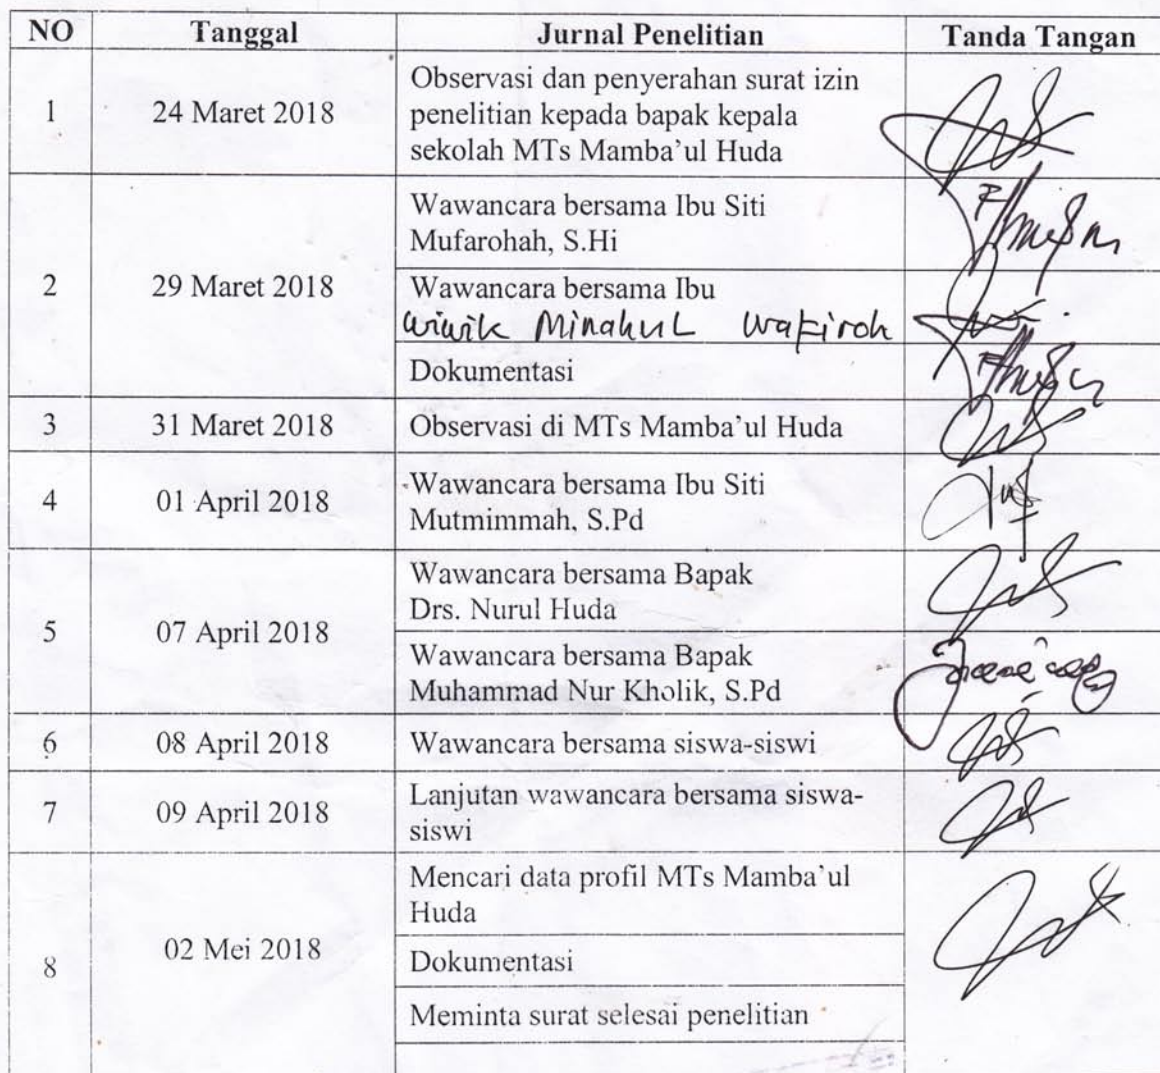 NO Tanggal Jurnal Penelitian Tanda Tangan
1 24 Maret 2018 Observasi dan penyerahan surat izin
penelitian kepada bapak kepala
sekolah MTs Mamba'ul Huda
2 29 Maret 2018 Wawancara bersama Ibu Siti
Mufarohah, S.Hi
Wawancara bersama Ibu
Wiwik Minahul Wafiroh
Dokumentasi
3 31 Maret 2018 Observasi di MTs Mamba'ul Huda
4 01 April 2018 Wawancara bersama Ibu Siti
Mutmimmah, S.Pd
5 07 April 2018 Wawancara bersama Bapak
Drs. Nurul Huda
Wawancara bersama Bapak
Muhammad Nur Kholik, S.Pd
6 08 April 2018 Wawancara bersama siswa-siswi
7 09 April 2018 Lanjutan wawancara bersama siswa-
siswi
8 02 Mei 2018 Mencari data profil MTs Mamba'ul
Huda
Dokumentasi
Meminta surat selesai penelitian